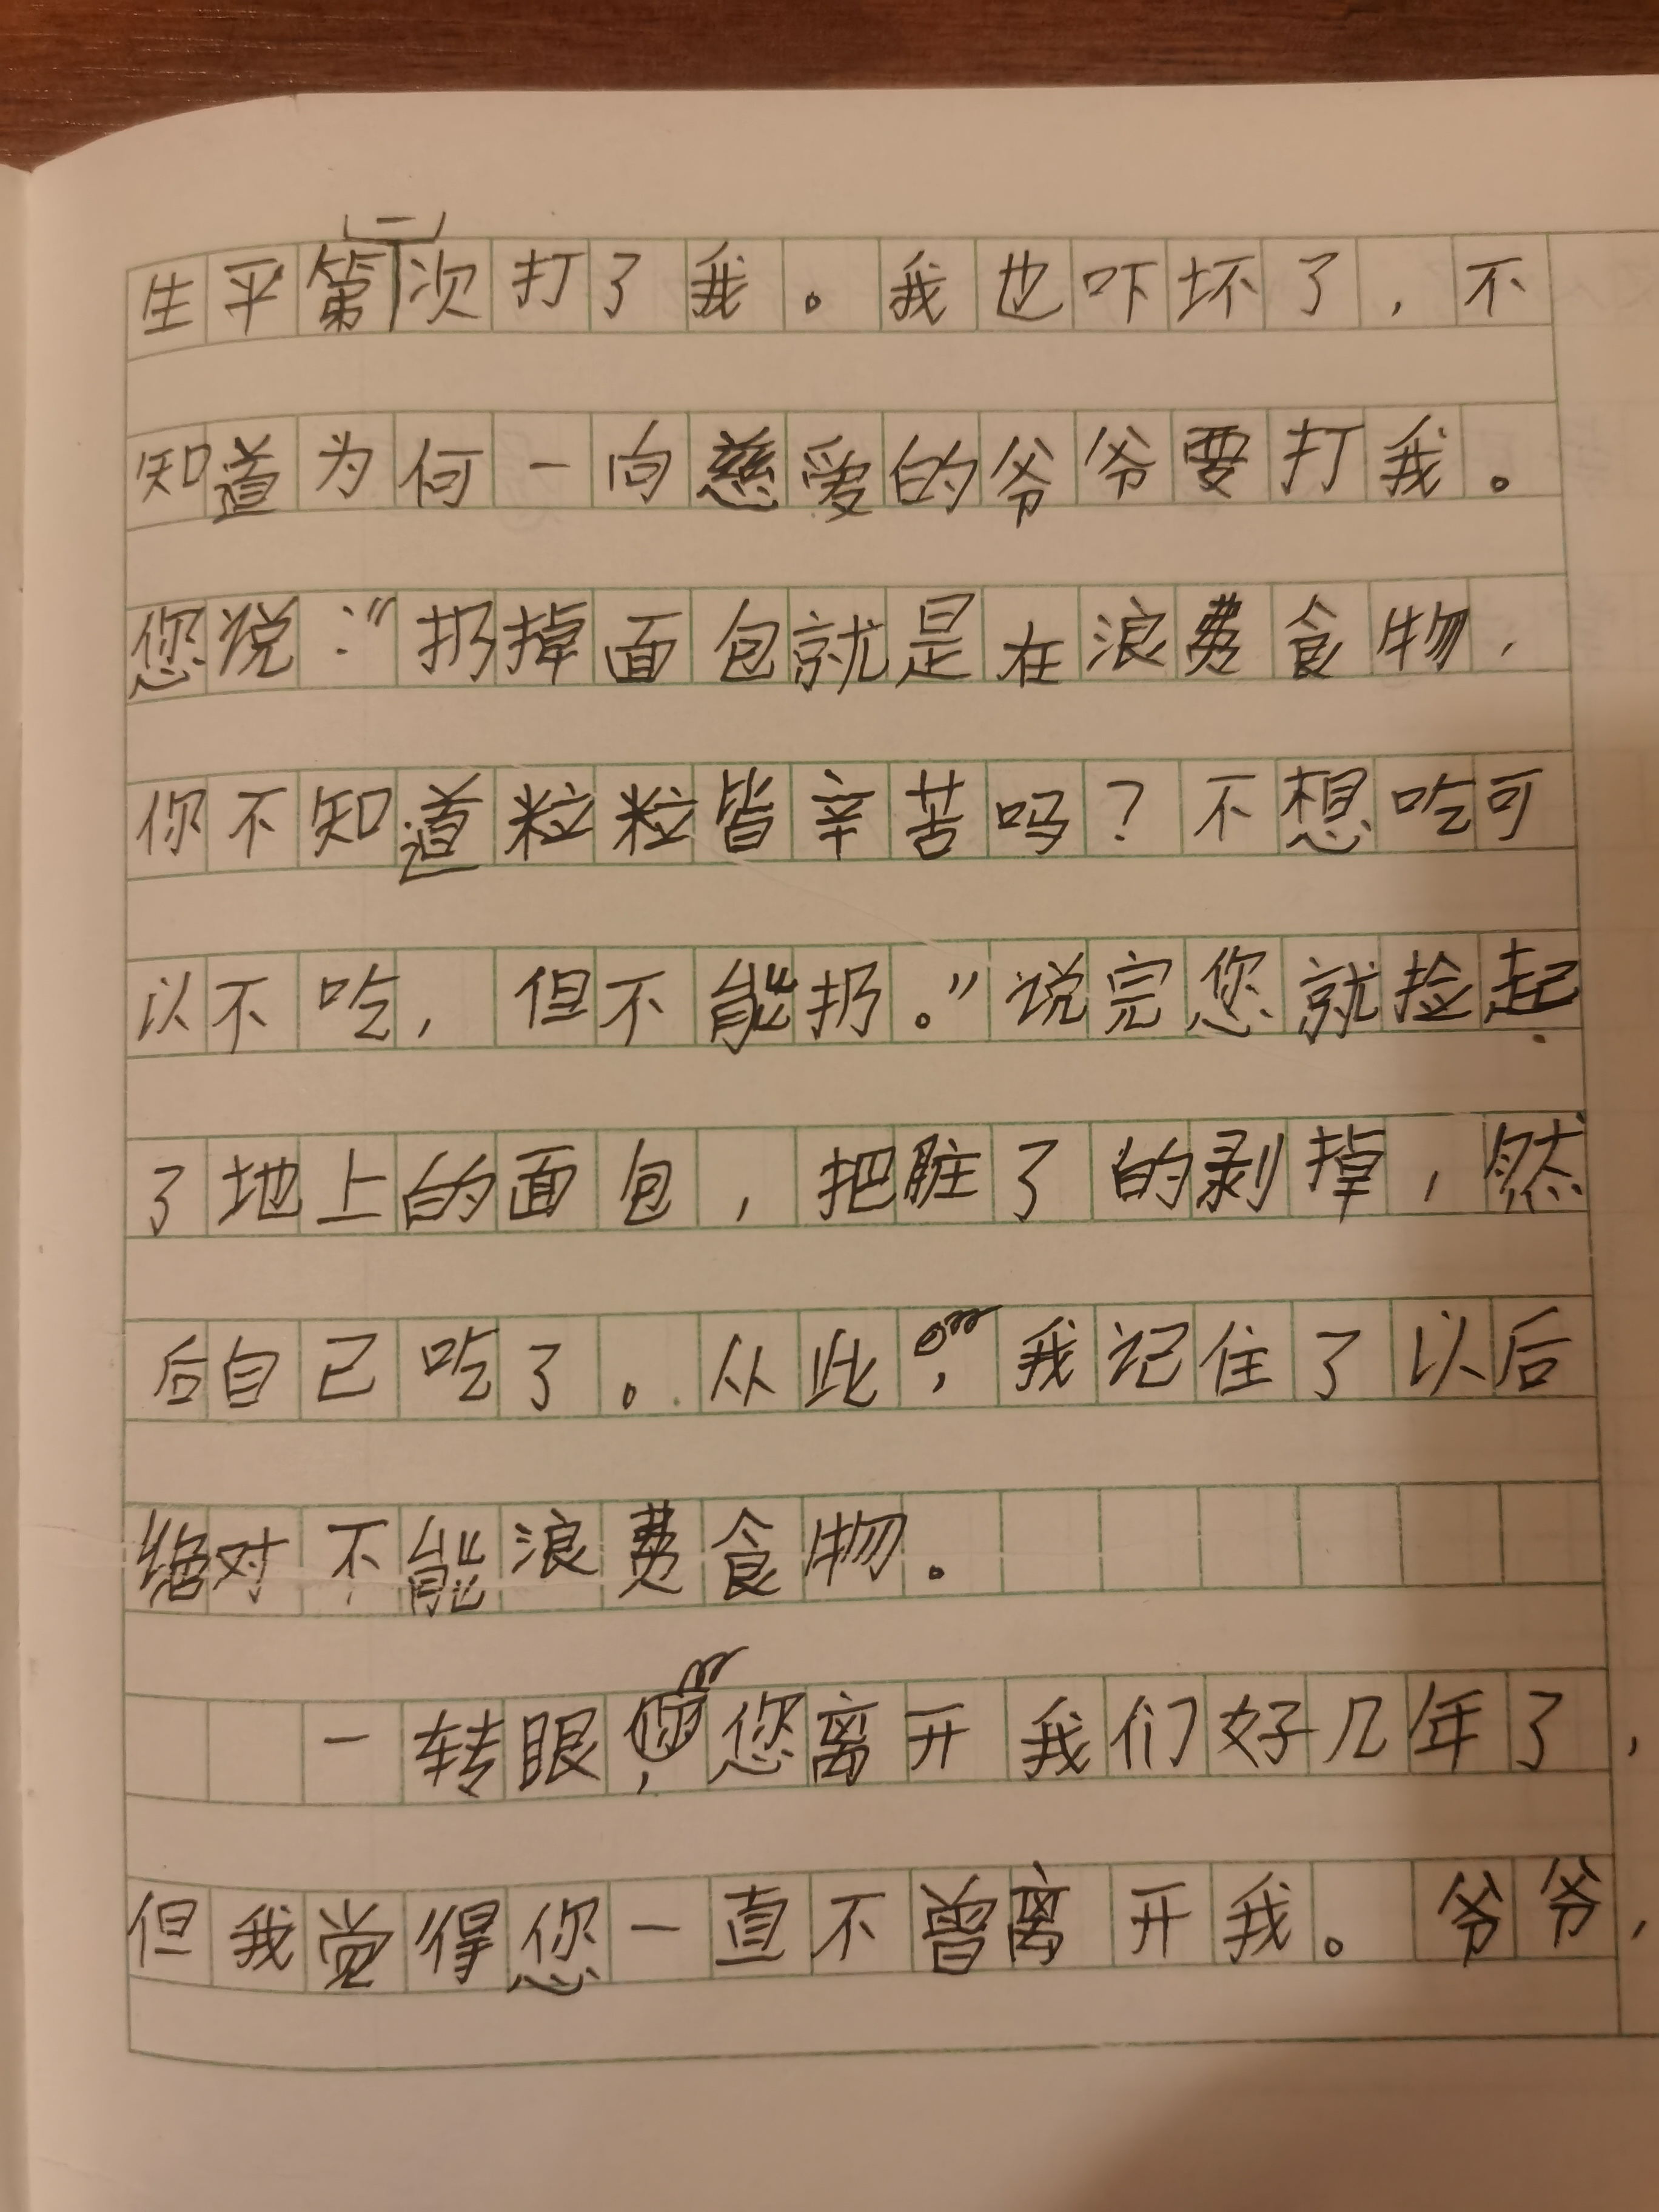 生平第一次打了我。我也吓坏了,不
知道为何一向慈爱的爷爷要打我。
您说:“扔掉面包就是在浪费食物,
你不知道粒粒皆辛苦吗?不想吃可
以不吃,但不能扔。”说完您就捡起
了地上的面包,把脏了的剥掉,然
后自己吃了。从此,我记住了以后
绝对不能浪费食物。
一转眼,您离开我们好几年了,
但我觉得您一直不曾离开我。爷爷,